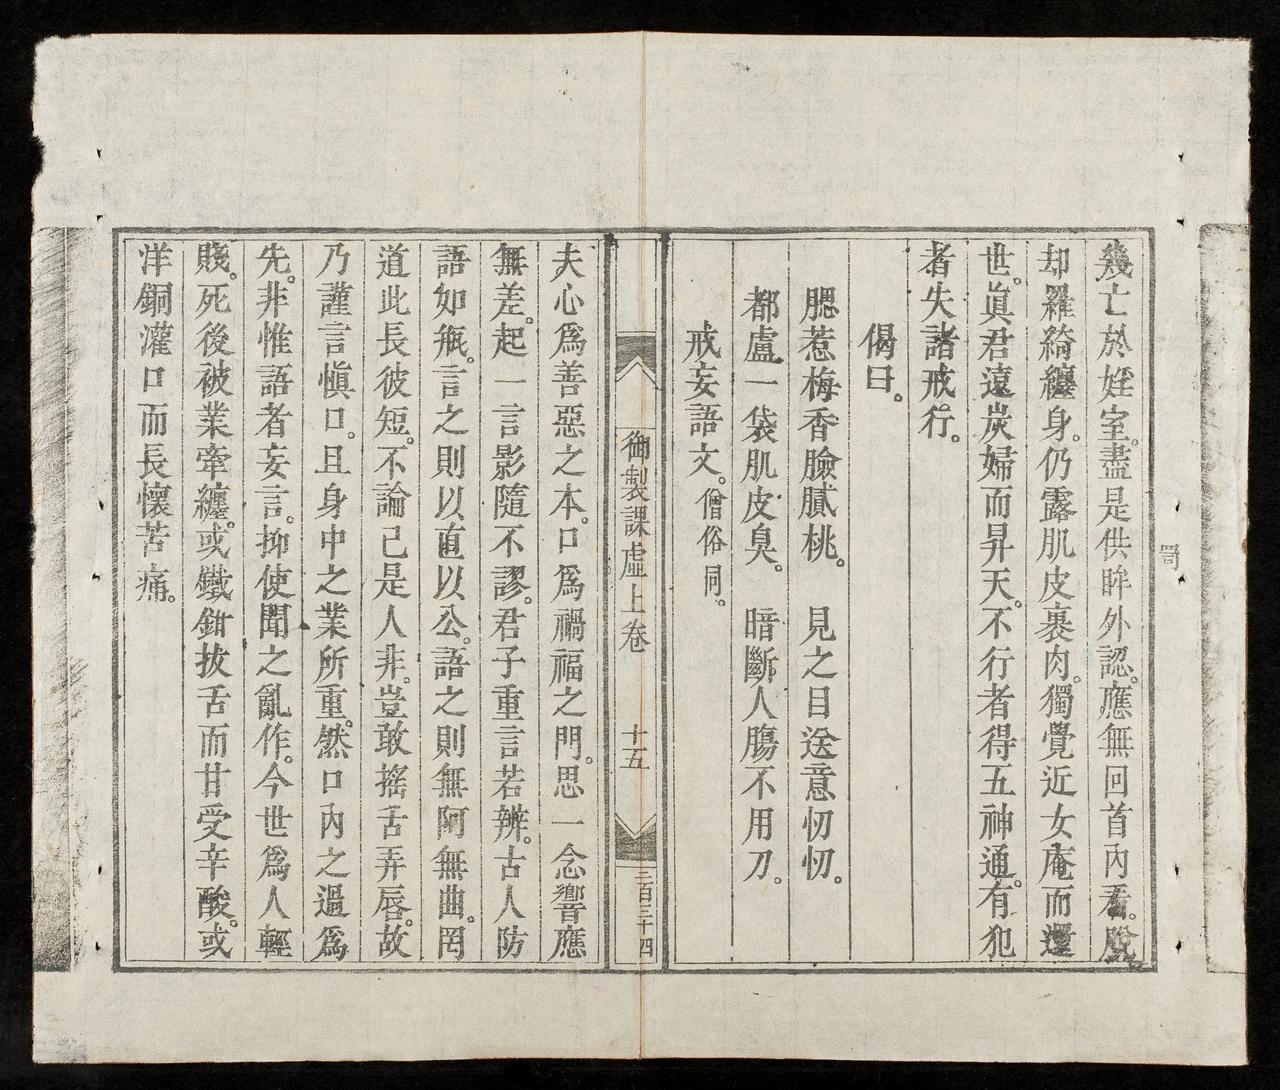 幾亡於婬室。盡是供眸外認。應無回首內看。脫
却羅綺纏身。仍露肌皮裹肉。獨覺近女庵而還
世。眞君遠炭婦而昇天。不行者得五神通。有犯
者失諸戒行。
偈曰。
腮惹梅香臉膩桃。 見之目送意忉忉。
都盧一袋肌皮臭。 暗斷人腸不用刀。
戒妄語文。僧俗同。
御製課虛上卷 十五 三百三十四
夫心爲善惡之本。口爲禍福之門。思一念響應
無差。起一言影隨不謬。君子重言若辨。古人防
語如甁。言之則以直以公。語之則無阿無曲。罔
道此長彼短。不論己是人非。豈敢搖舌弄唇。故
乃謹言愼口。且身中之業所重。然口內之過爲
先。非惟語者妄言。抑使聞之亂作。今世爲人輕
賤。死後被業牽纏。或鐵鉗拔舌而甘受辛酸。或
洋銅灌口而長懷苦痛。